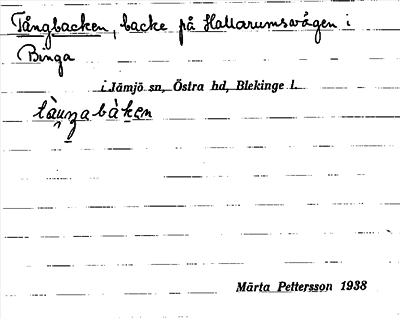 Tångbacken, backe på Hallarumsvägen i
Binga
i Jämjö sn, Östra hd, Blekinge l.
Märta Pettersson 1938